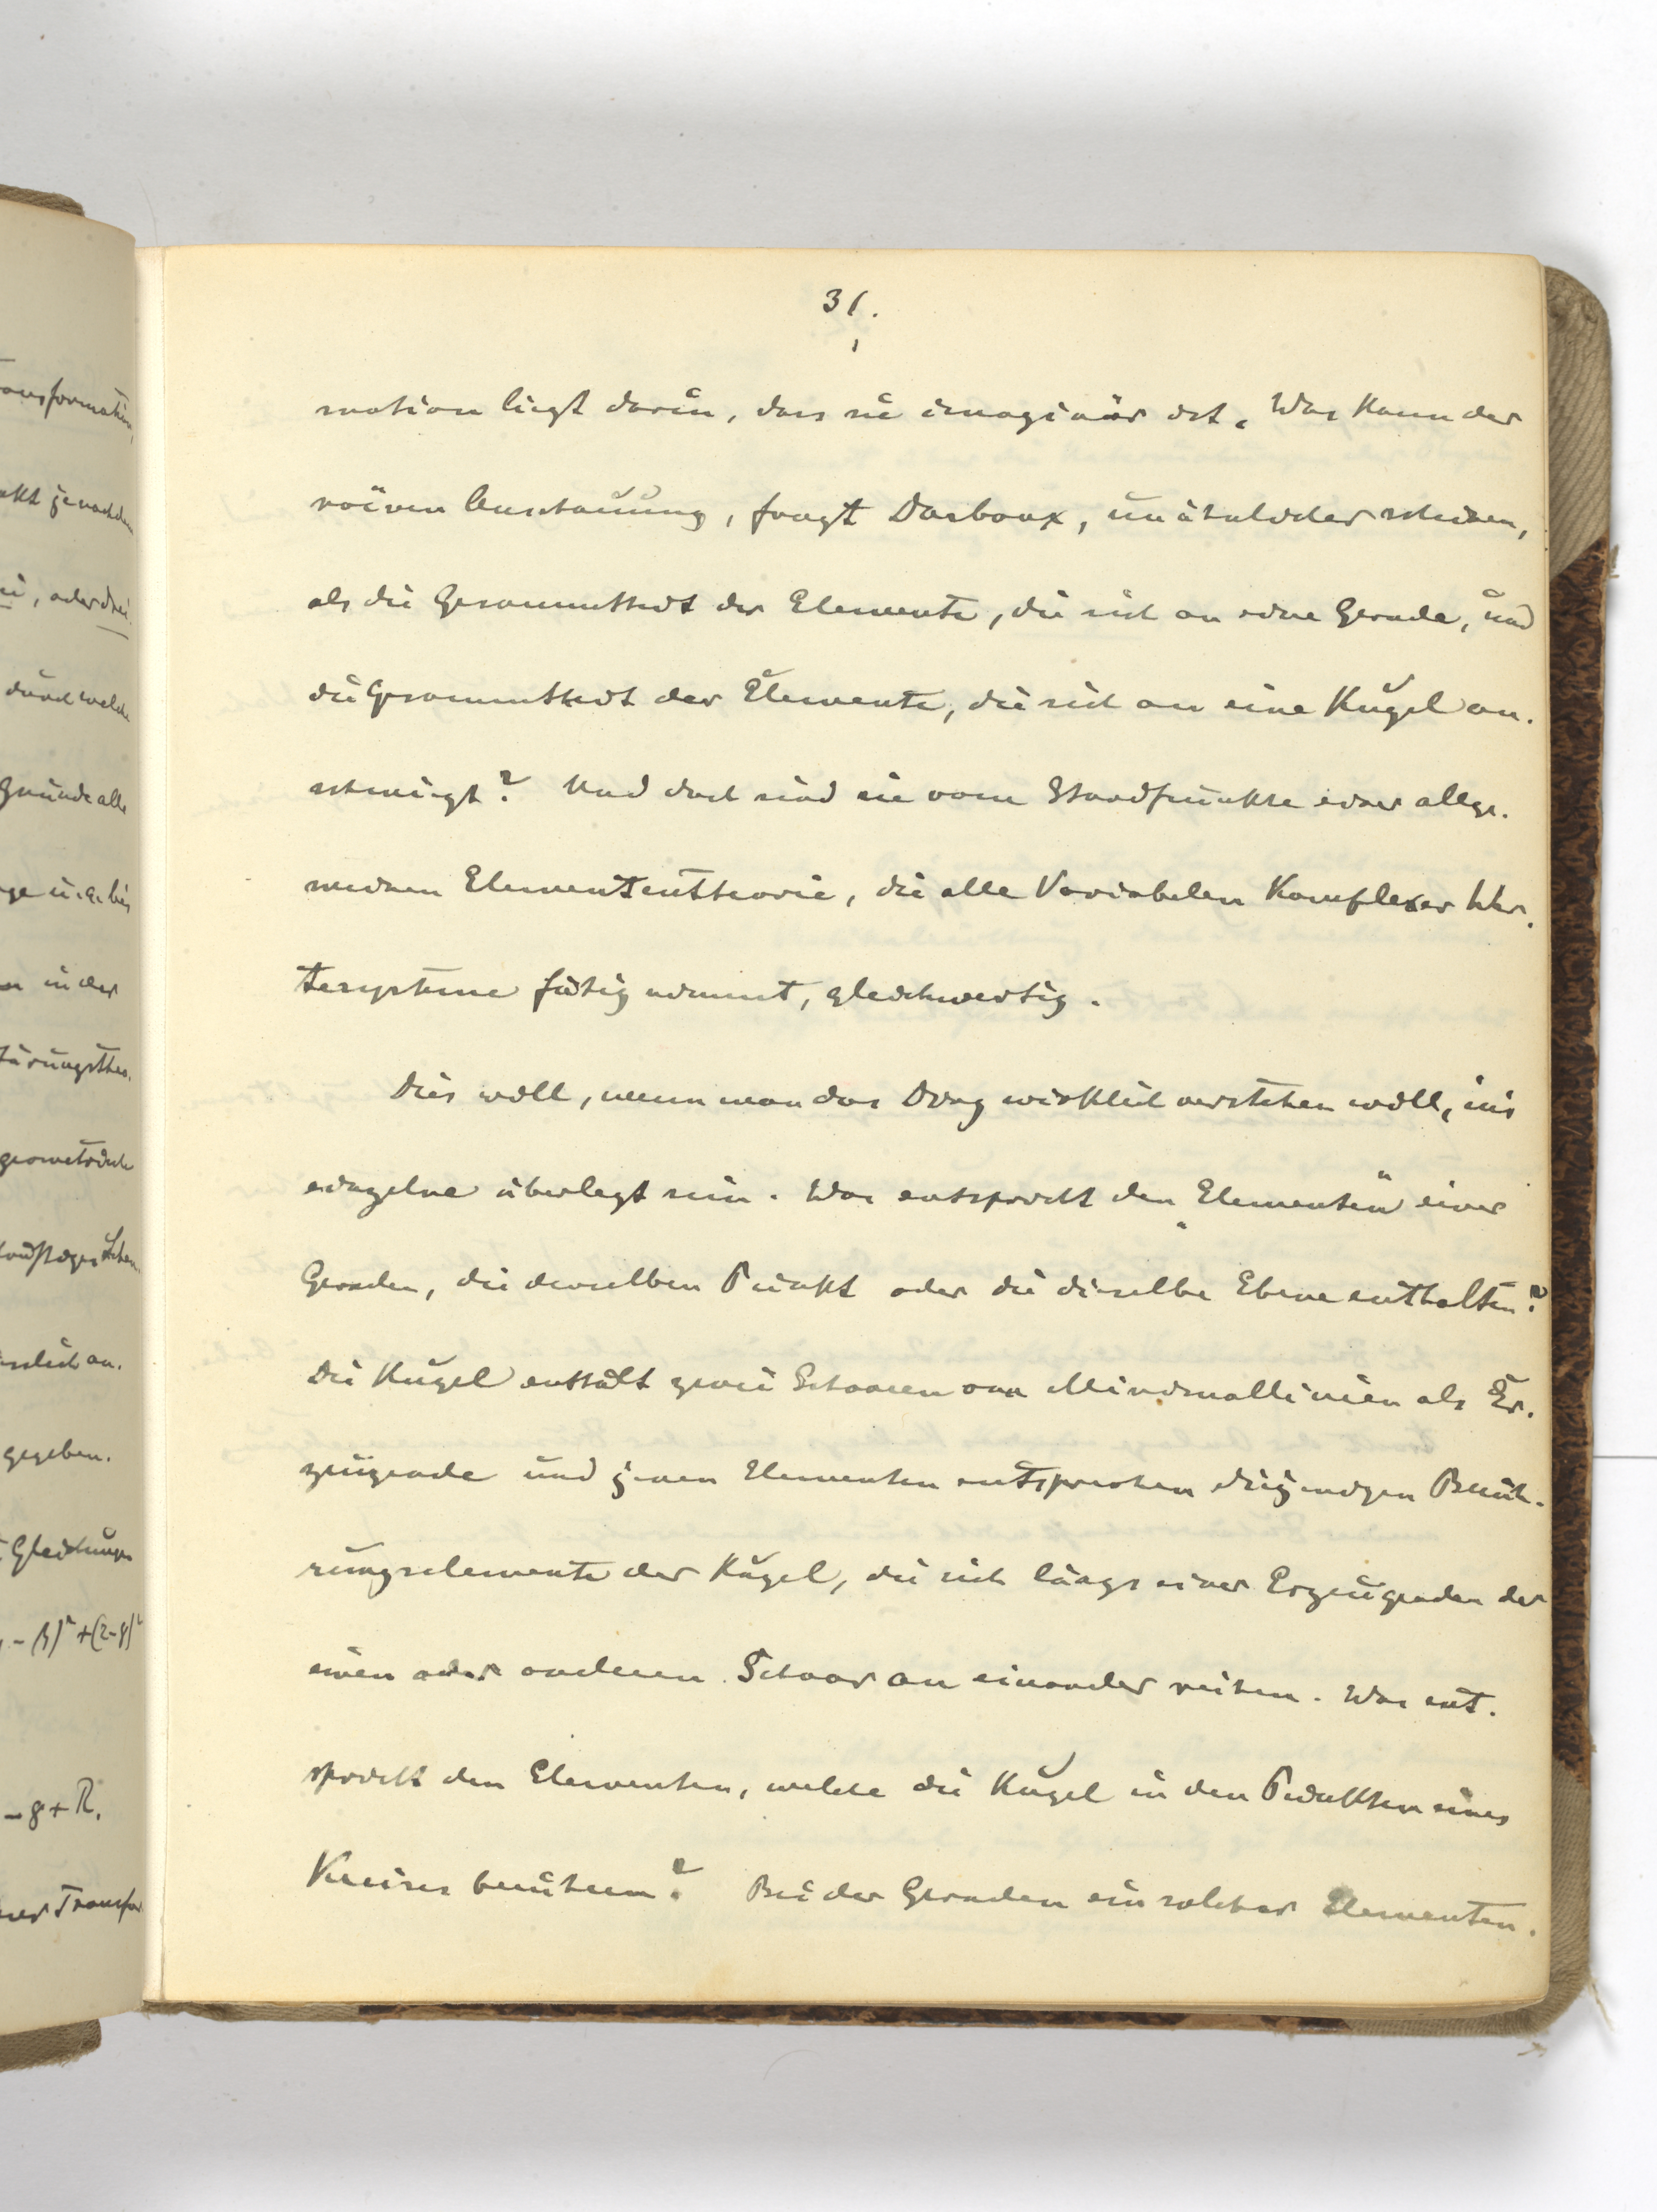 31.
mation liegt darin, dass sie imaginär ist. Was kann der
naiven Anschauung, fragt Darboux, unähnlicher scheinen,
als die Gesammtheit der Elemente, die sich an eine Gerade, und
die Gesammtheit der Elemente, die sich an eine Kugel an-
schmiegt? Und doch sind sie vom Standpunkte einer allge-
meinen Elemententheorie, die alle Variabelen komplexer Wer-
tesysteme fähig nimmt, gleichwertig.
Dies will, wenn man das Ding wirklich verstehen will, ins
einzelne überlegt sein. Was entspricht den „Elementen" einer
Geraden, die denselben Punkt oder die dieselbe Ebene enthalten?
Die Kugel enthält zwei Schaaren von Minimallinien als Er-
zeugende und jenen Elementen entsprechen diejenigen Berüh-
rungselemente der Kugel, die sich längs einer Erzeugenden der
einen oder anderen Schaar an einander reihen. Was ent-
spricht den Elementen, welche die Kugel in den Punkten eines
Kreises berühren? Bei der Geraden ein solcher Elementen-
ransformation,
ode drei
durch welche
Grunde alle
in der
gegeben.
Gleichungen
- β)² + (z-γ)²
- γ + R.
er Transfor